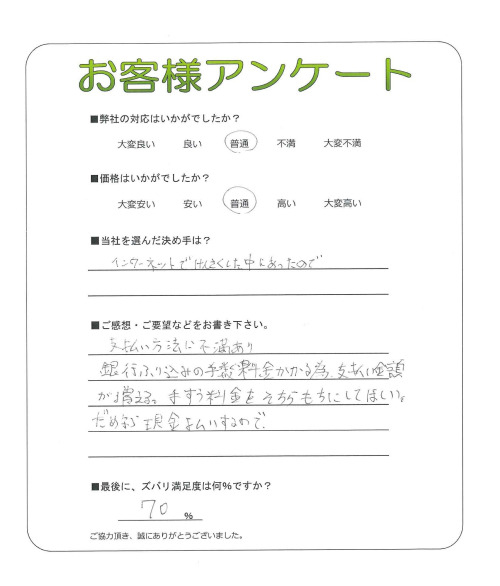 お客様アンケート
■弊社の対応はいかがでしたか?
大変良い 良い 普通 不満 大変不満
■価格はいかがでしたか?
大変安い 安い 普通 高い 大変高い
■当社を選んだ決め手は?
インターネットでけんさくした中にあったので
■ご感想・ご要望などをお書き下さい。
支払い方法に不満あり
銀行ふり込みの手数料金かかる為、支払い金額
が増える。手すう料金をそちらもちにしてほしい。
だめなら現金払いするので
■最後に、ズバリ満足度は何%ですか?
70 %
ご協力頂き、誠にありがとうございました。